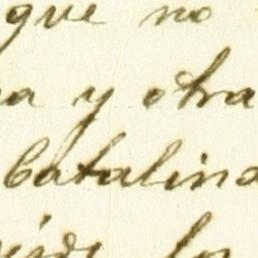 que no
y otra
Catalina